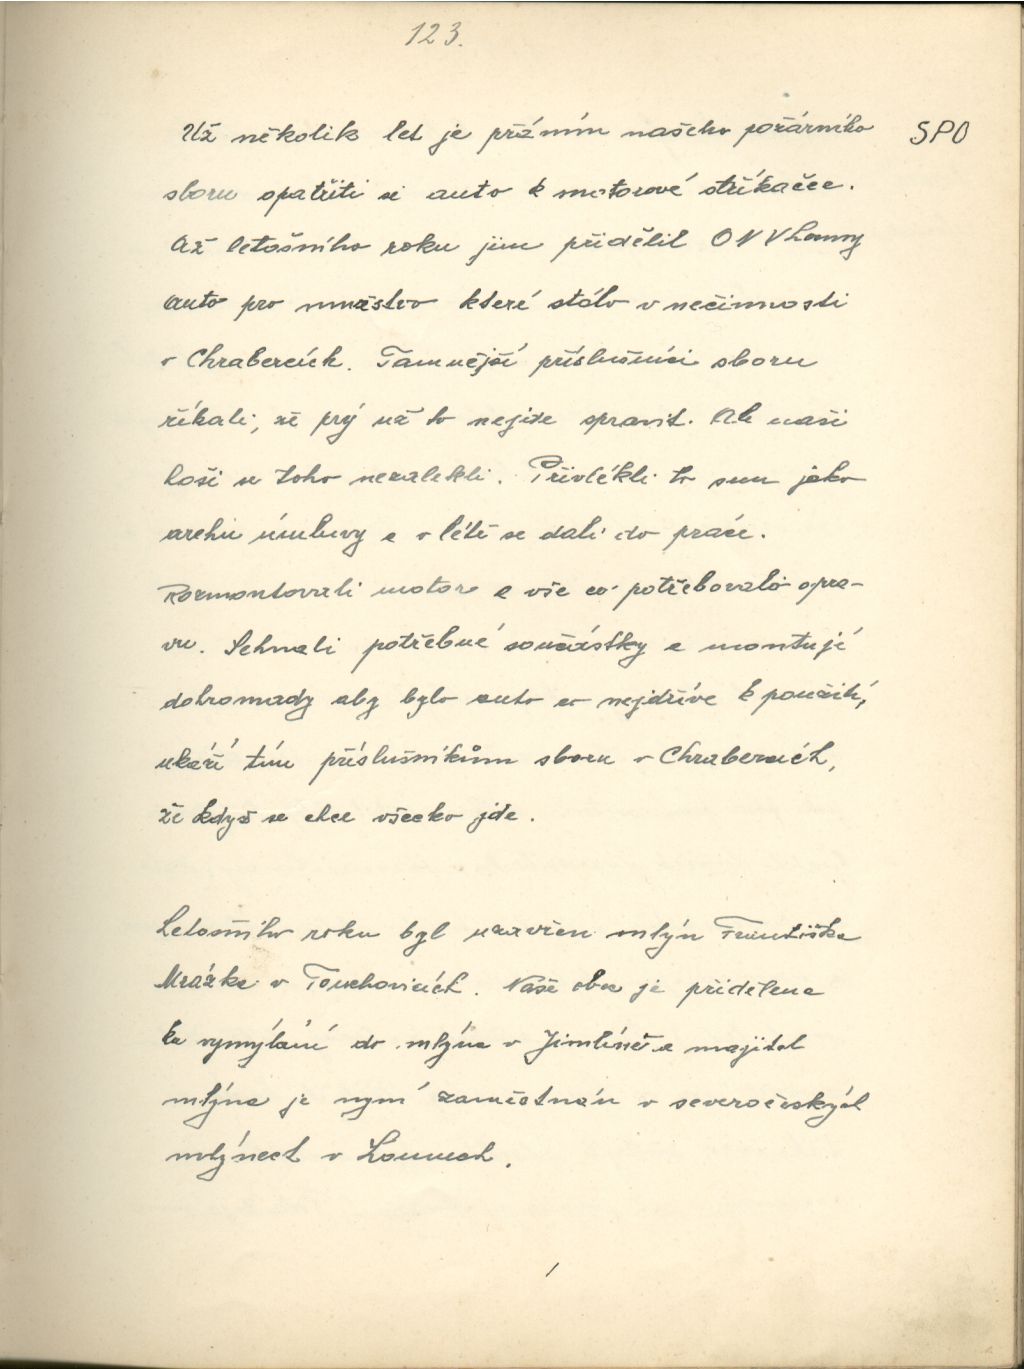 123.
Už několik let je přáním našeho požárního SPO
sboru opatřiti si auto k motorové stříkačce.
Až letošního roku jim přidělil ONV Louny
auto pro mužstvo které stálo v nečinnosti
v Chrabercích. Tamnější příslušníci sboru
říkali, že prý už to nejde spravit. Ale naši
hoši se toho nezalekli. Přivlékli to sem jako
archu úmluvy a v létě se dali do práce.
Rozmontovali motor a vše co potřebovalo opra-
vu. Sehnali potřebné součástky a montují
dohromady aby bylo auto co nejdříve k použití,
ukáží tím příslušníkům sboru v Chrabercích,
že když se chce všecko jde.
Letošního roku byl uzavřen mlýn Františka
Mrázka v Touchovicích. Naše obec je přidělena
ku vymýlání do mlýna v Jimlíně a majitel
mlýna je nyní zaměstnán v severočeských
mlýnech v Lounech.